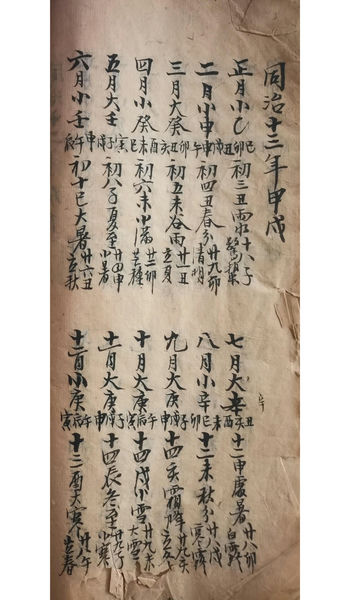 同治十三年甲戌
正月小乙巳丑亥 初三丑雨水 十八子驚蟄
二月小甲戌申午 初四丑春分 廿九卯清明
三月大癸卯丑亥 初五未谷雨 廿一丑立夏
四月小癸酉未巳 初六未小滿 廿二卯芒種
五月大壬寅子戌 初八子夏至 廿四申小暑
六月小壬申午辰 初十巳大暑 廿六丑立秋
七月大辛丑亥酉 十二申處暑 廿八卯白露
八月小辛未巳卯 十二未秋分 廿八戌寒露
九月大庚子戌申 十四亥霜降 廿九亥立冬
十月大庚午辰寅 十四戌小雪 廿九未大雪
十一月大庚子戌申 十四辰冬至 廿九子小寒
十二月小庚午辰寅 十二酉大寒 廿八午立春